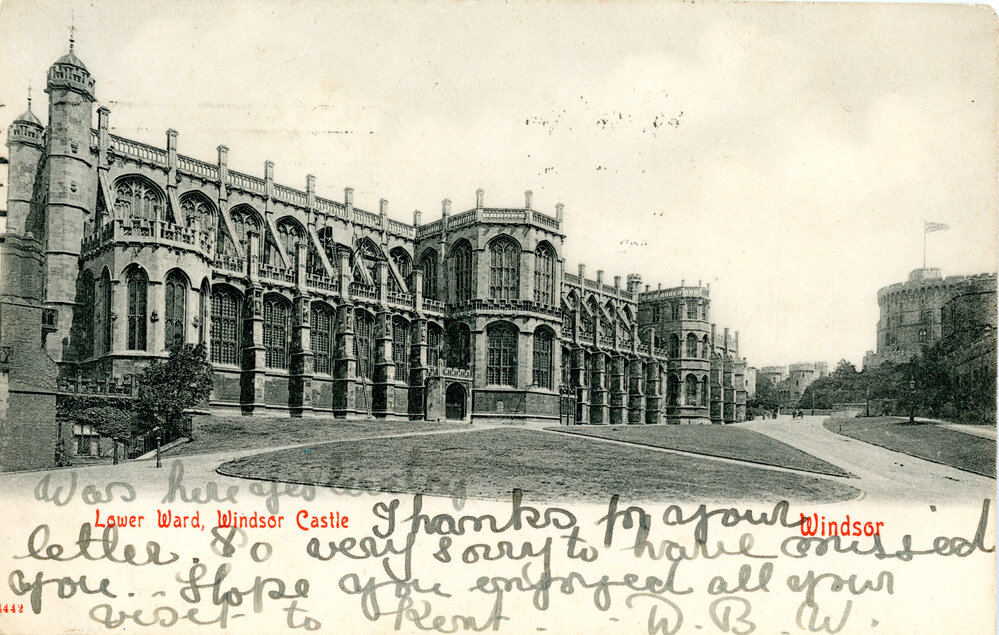 Was here yesterday
Lower Ward, Windsor Castle
Windsor
Thanks for your
letter. So very sorry to have missed
you. Hope you enjoyed all your
visit to Kent. D. B. W.
4442